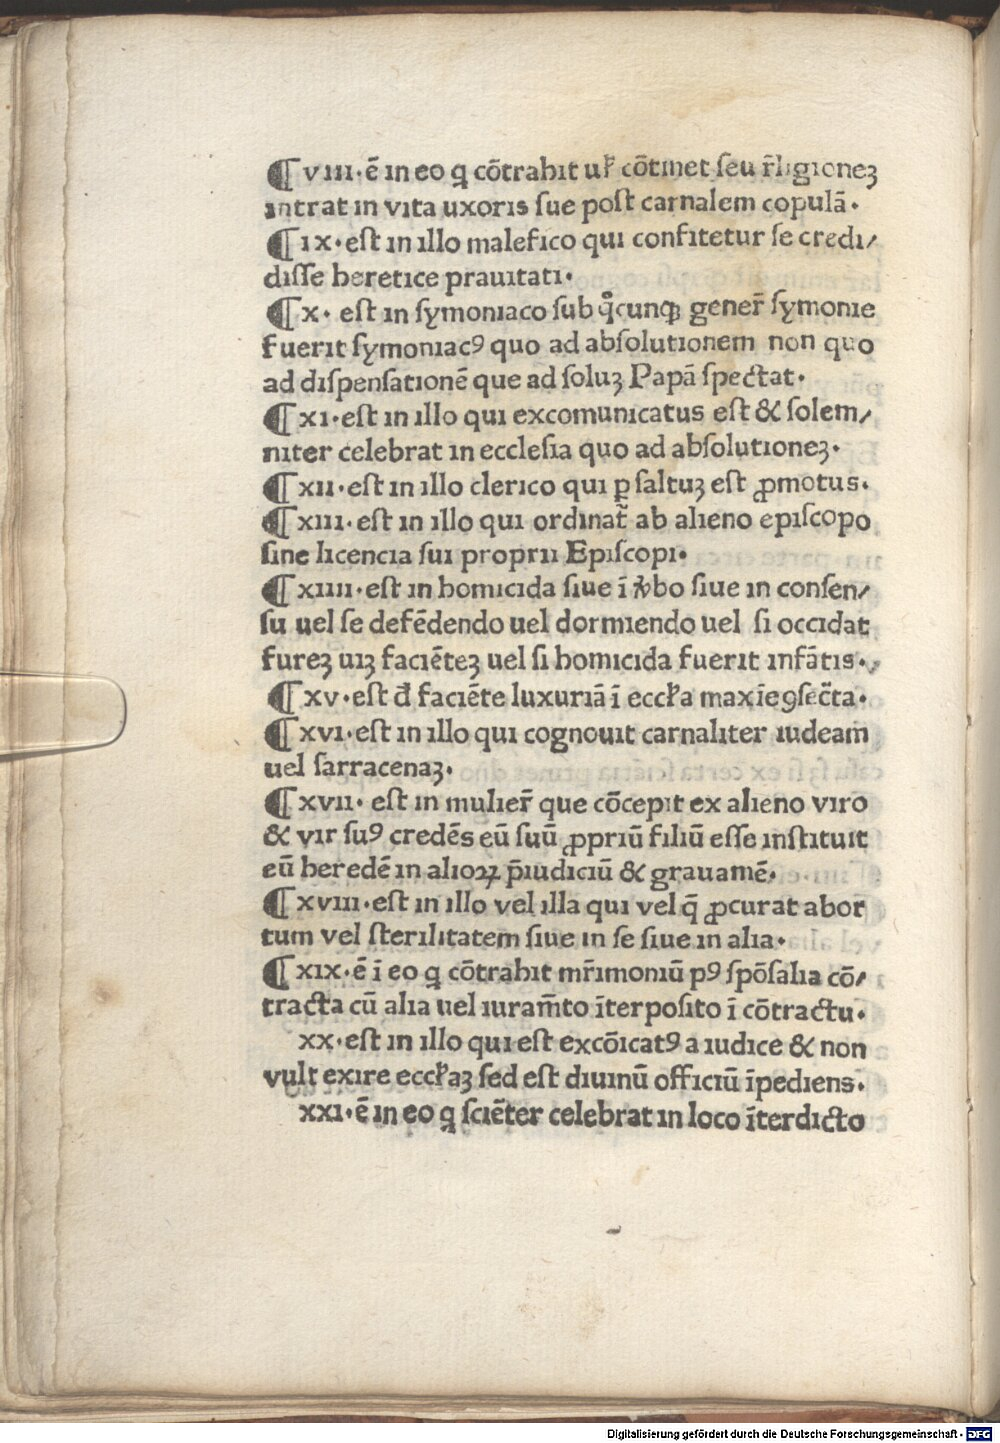 ¶ viii·ē in eo q̄ cōtrahit ul̄ cōtinet seu r̄ligionez
intrat in vita uxoris sue post carnalem copulā·
¶ ix·est in illo malefico qui confitetur se credi/
disse heretice prauitati·
¶ x· est in symoniaco sub q̊cunqꝫ gener̄ symonie
fuerit symoniacꝰ quo ad absolutionem non quo
ad dispensationē que ad soluꝫ Papā spectat·
¶ xi·est in illo qui excomunicatus est & solem/
niter celebrat in ecclesia quo ad absolutioneꝫ·
¶ xii·est in illo clerico qui ꝑ saltuꝫ est ꝓmotus·
¶ xiii·est in illo qui ordinat̄ ab alieno episcopo
sine licencia sui proprii Episcopi·
¶ xiiii·est in homicida siue ī v̄bo siue in consen/
su uel se defēdendo uel dormiendo uel si occidat
fureꝫ uiꝫ faciēteꝫ uel si homicida fuerit infātis·
¶ xv·est đ faciēte luxuriā ī eccl̄a maxīe ꝯsec̄ta·
¶ xvi·est in illo qui cognouit carnaliter iudeam
uel sarracenaꝫ·
¶ xvii· est in mulier̄ que cōcepit ex alieno viro
& vir suꝰ credēs eū suū ꝓpriū filiū esse instituit
eū heredē in alioꝝ p̄iudiciū & grauamē·
¶ xviii·est in illo vel illa qui vel q̄ ꝓcurat abor
tum vel sterilitatem siue in se siue in alia·
¶ xix·ē ī eo q̄ cōtrahit mr̄imoniū pꝰ spōsalia cō/
tracta cū alia uel iuram̄to īterposito ī cōtractu·
xx·est in illo qui est excōicatꝰ a iudice & non
vult exire eccl̄aꝫ sed est diuinū officiū īpediens·
xxi·ē in eo q̄ sciēter celebrat in loco īterdicto
Digitalisierung gefördert durch die Deutsche Forschungsgemeinschaft - DFG